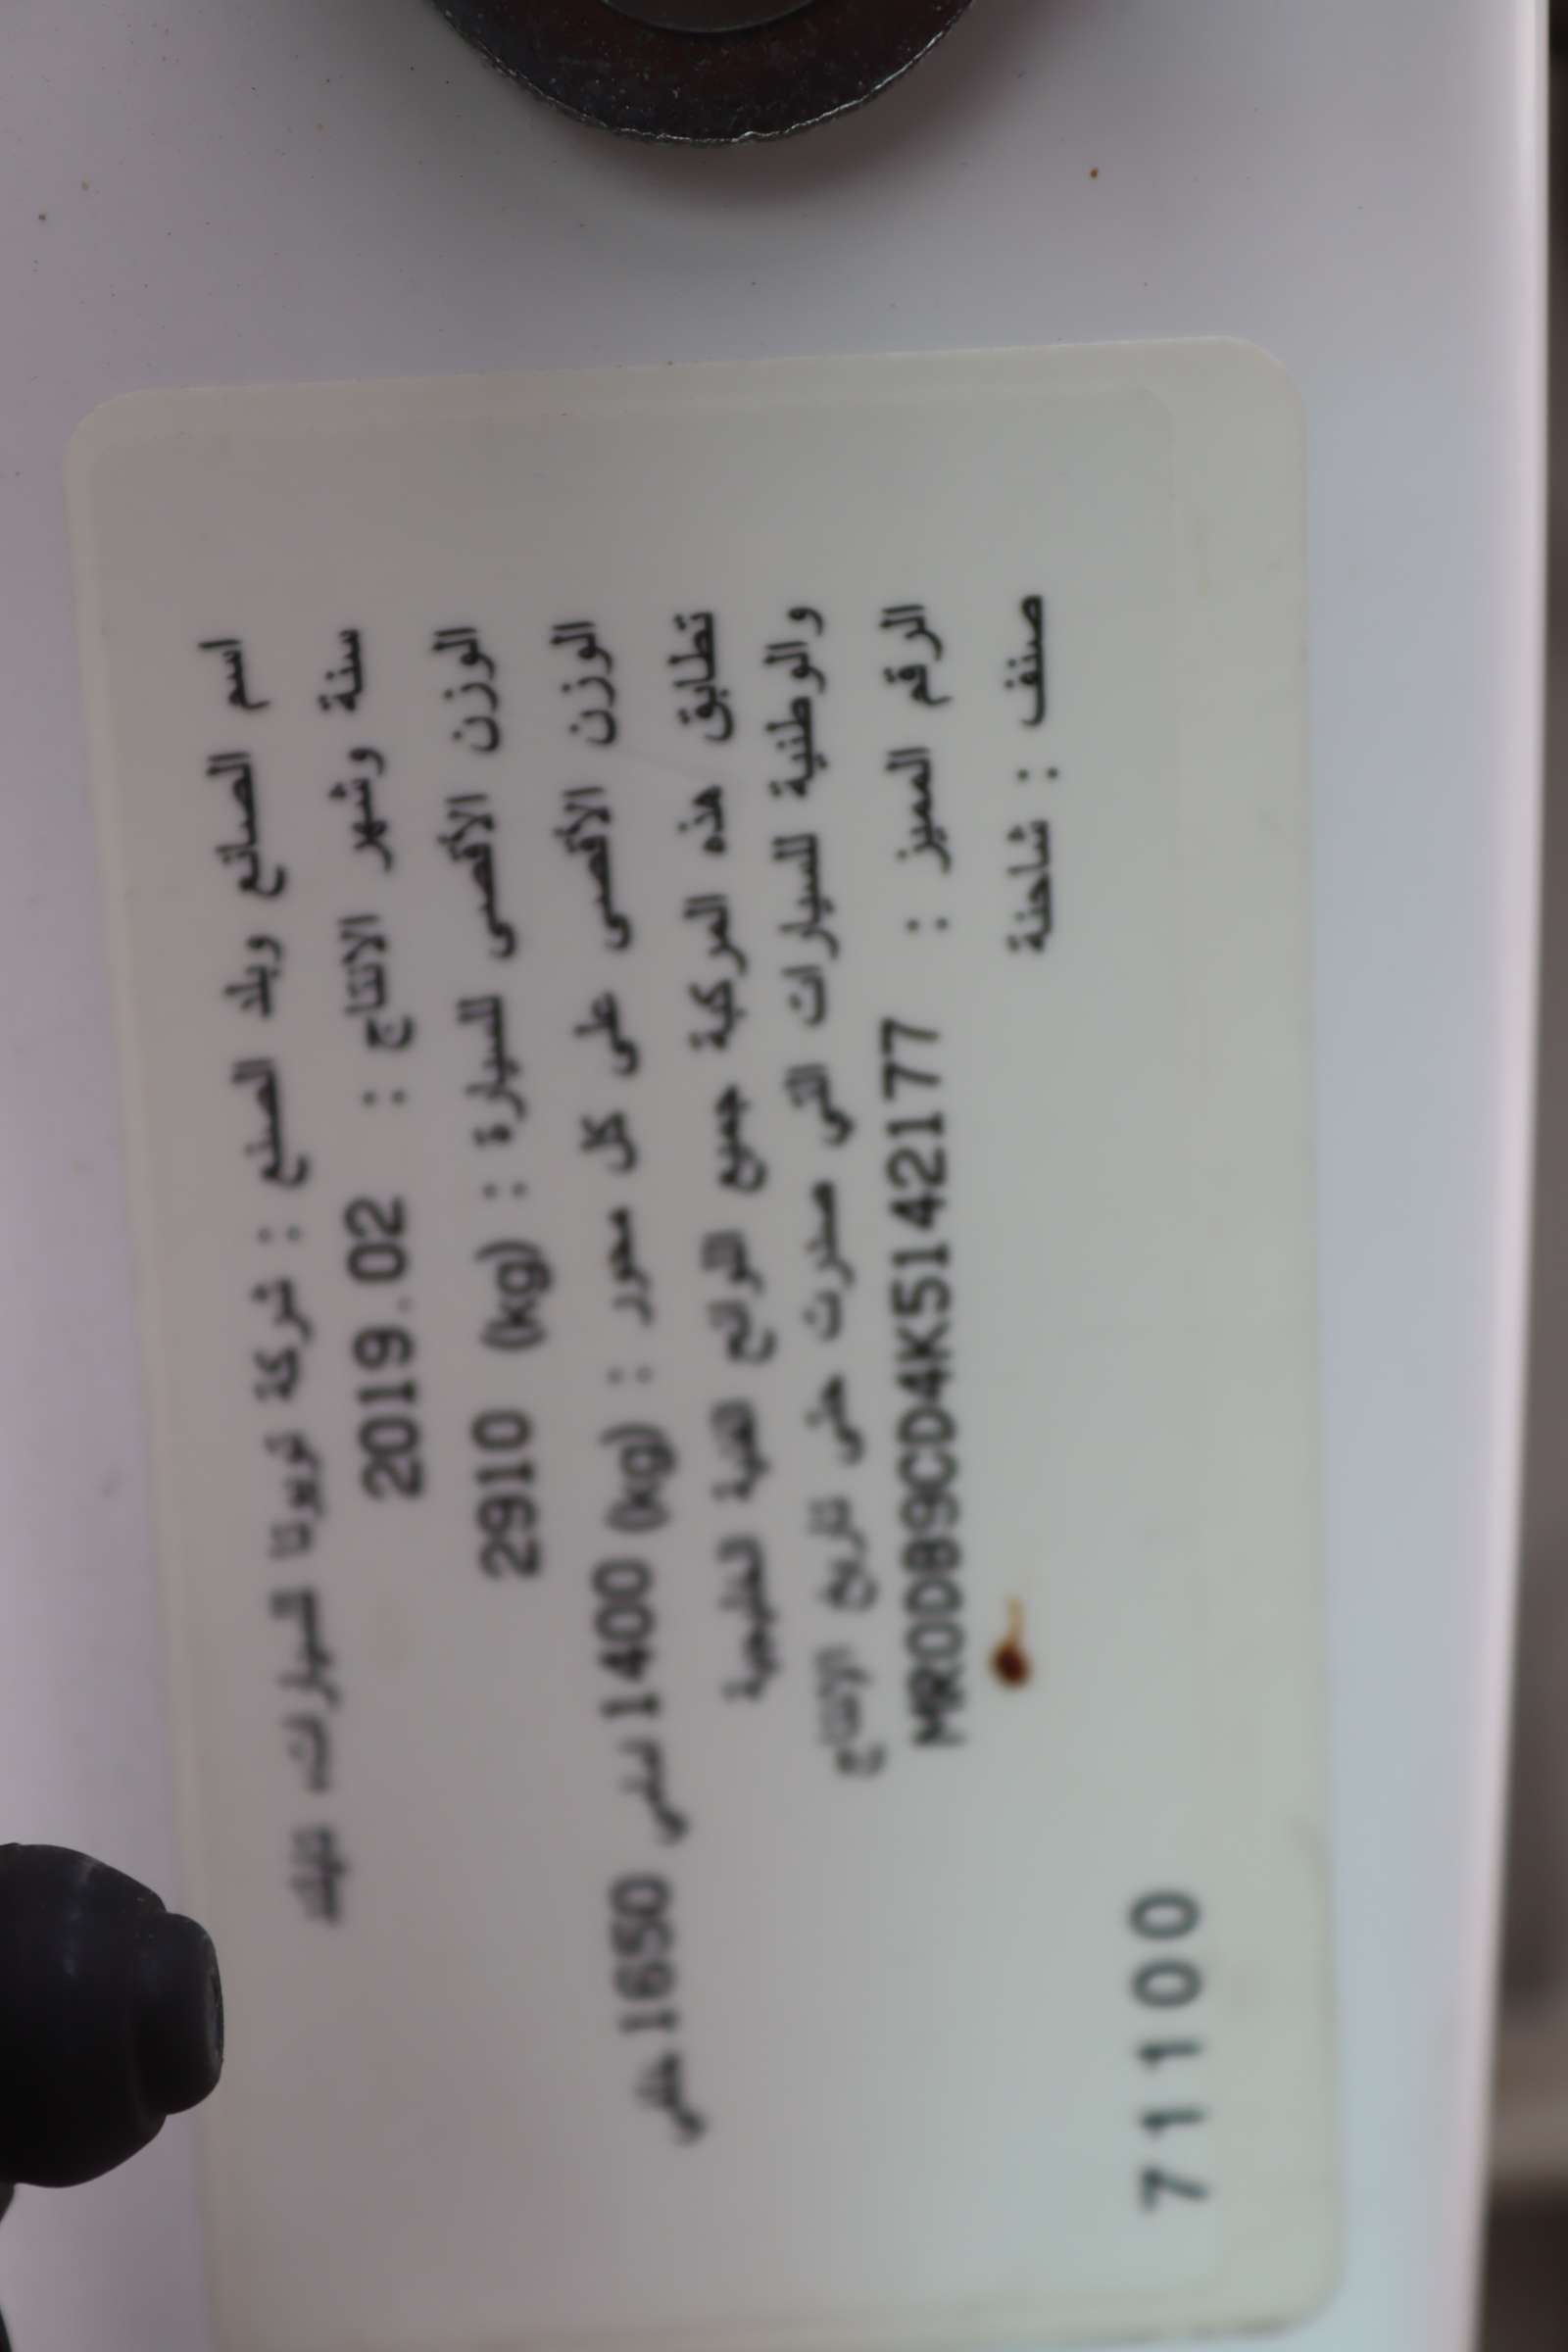 اسم الصانع وبلد الصنع : شركة تويوتا للسيارات تايلند
سنة وشهر الانتاج : 2019.02
الوزن الأقصى للسيارة : (kg) 2910
الوزن الأقصى على كل محور : (kg) 1400 امامي 1650 خلفي
تطابق هذه المركبة جميع اللوائح الفنية الخليجية
والوطنية للسيارات التي صدرت حتى تاريخ الإنتاج
الرقم المميز : MR0DB9CD4K5142177
صنف : شاحنة
71100